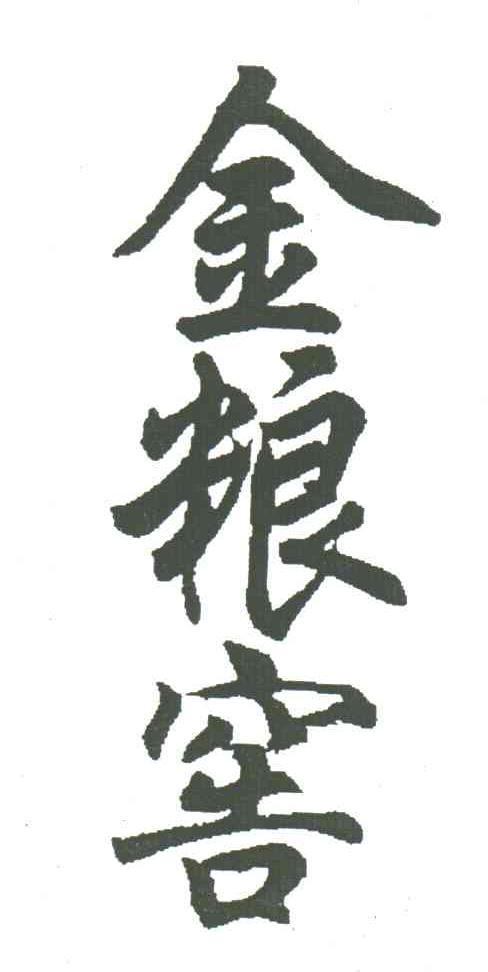 金粮窖